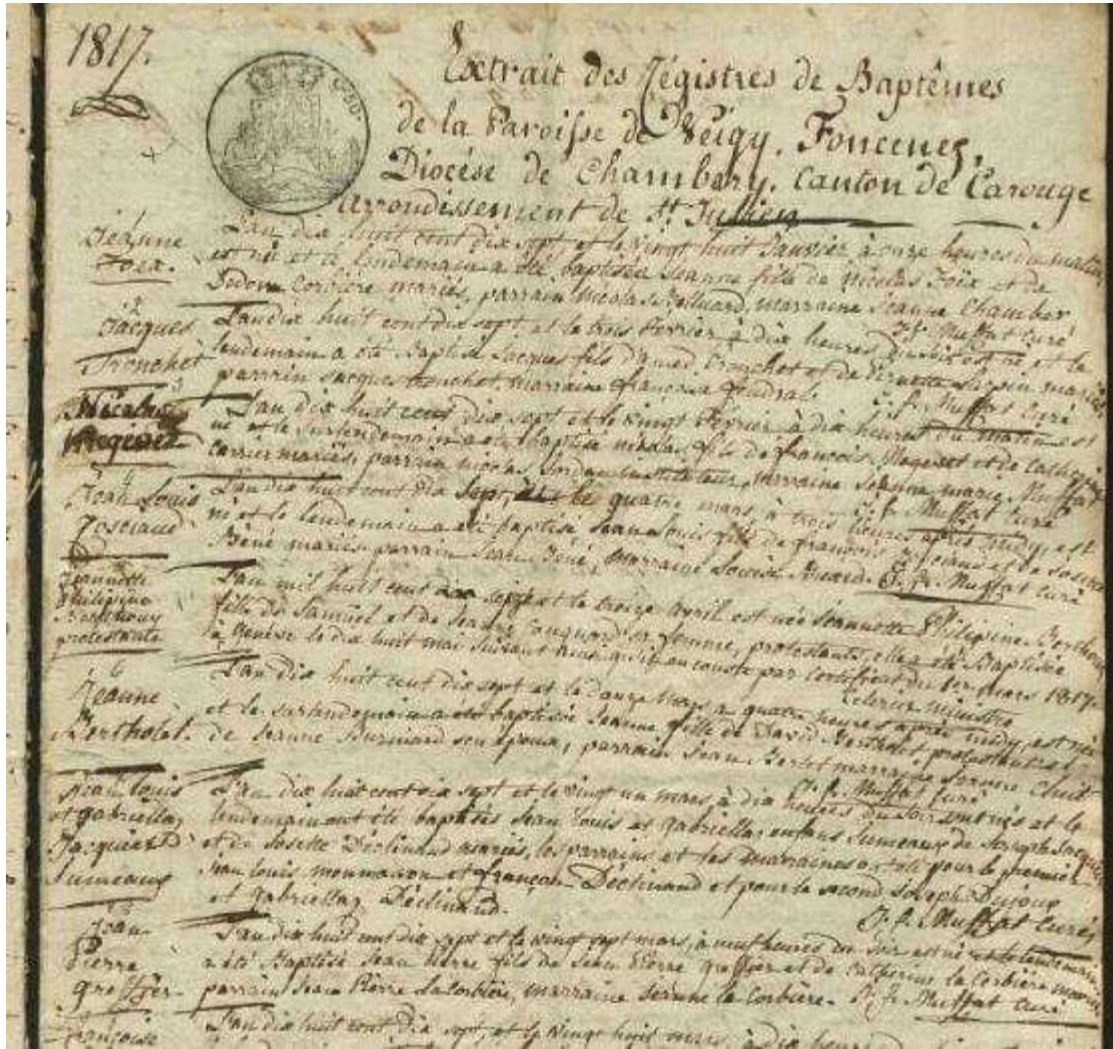 1817.
Extrait des Régistres de Baptêmes
de la Paroisse de Veigy, Foncenex,
Diocèse de Chambery, Canton de Carouge
Arrondissement de St Julien
Jeanne
Foëx.
L'an dix huit cent dix sept et le vingt huit Janvier à onze heures du matin
est née et le lendemain a été baptisée Jeanne fille de Nicolas Foëx et de
Corbière mariés, parrain Nicolas Bolluard, marraine Jeanne Chamber
J. f. Muffat Curé
2
Jacques
Tronchet
L'an dix huit cent dix sept et le trois Février à dix heures du soir est né et le
lendemain a été Baptisé Jacques fils d'amed Tronchet et de Pernette mariés
parrain Jacques tronchet, marraine françoise
J. f. Muffat Curé
3
Nicolas
Megevet
L'an dix huit cent dix sept et le vingt Février à dix heures du matin est
né et le surlendemain a été baptisé nicolas fils de françois Megevet et de Catherine
Carrier mariés, parrain nicolas Jordan Instituteur, marraine Jeanne marie Muffat
J. f. Muffat Curé
4
Jean Louis
L'an dix huit cent dix sept, et le quatre mars à trois heures après midy, est
né et le lendemain a été baptisé Jean Louis fils de françois et de Josine
Béné mariés, parrain Jean Béné, marraine Louise J. f. Muffat Curé
5
Jeannette
Philipine
Berthoux
protestante
L'an mil huit cent dix sept et le treize avril est née Jeannette Philipine Berthoux
fille de Samuel et de Jeanne sa femme, protestants, elle a été Baptisée
à Genève le dix huit mai suivant ainsi qu'il en conste par certificat du 1er mars 1817.
ministre
6
Jeanne
Bertholet.
L'an dix huit cent dix sept et le douze Mars à quatre heures après midy, est née
et le surlendemain a été baptisée Jeanne fille de David Bertholet protestant et
de Jeanne son épouse, parrain Jean Berlet marraine Jeanne
J. f. Muffat Curé
Jean Louis
et gabriellaz
Jacquier
Jumeaux
L'an dix huit cent dix sept et le vingt un mars, à dix heures du soir sont nés et le
lendemain ont été baptisés Jean Louis et gabriellaz enfans Jumeaux de Joseph Jacquier
et de Josette Déclinand mariés, les parrains et les marraines ont été pour le premier
Jean Louis et françoise Déclinand et pour le second Joseph Dujoux
et gabriellaz Déclinand.
J. f. Muffat Curé
8
Jean
Pierre
greffier.
L'an dix huit cent dix sept et le vingt sept mars, à neuf heures du soir est né et le lendemain
a été Baptisé Jean Pierre fils de Jean Pierre greffier et de Catherine la Corbière mariés
parrain Jean Pierre la Corbière, marraine Jeanne la Corbière. J. f. Muffat Curé
Françoise
L'an dix huit cent dix sept, et le vingt huit mars, à dix heures